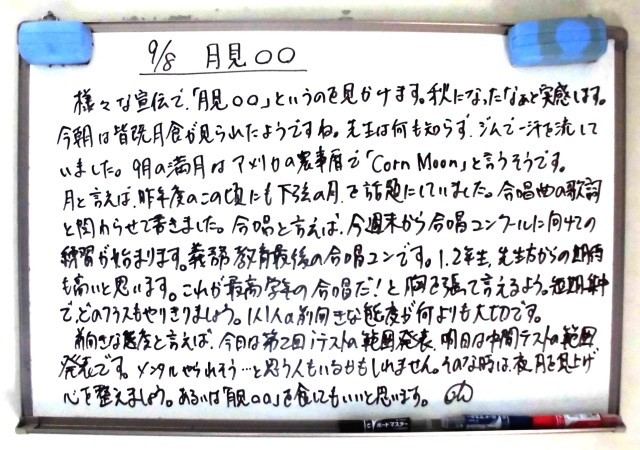 9/8 月見○○
様々な宣伝で、「月見○○」というのを見かけます。秋になったなあと実感します。
今朝は皆既月食が見られたようですね。先生は何も知らず、ジムで一汗を流して
いました。9月の満月はアメリカの農事暦で「Corn Moon」と言うそうです。
月と言えば、昨年度のこの頃にも下弦の月を話題にしていました。合唱曲の歌詞
と関わらせて書きました。合唱と言えば、今週末から合唱コンクールに向けての
練習が始まります。義務教育最後の合唱コンです。1,2年生、先生方からの期待
も高いと思います。これが最高学年の合唱だ!と胸を張って言えるよう、短期集中
で、どのクラスもやりきりましょう。1人1人の前向きな態度が何よりも大切です。
前向きな態度と言えば、今日は第2回実テストの範囲発表、明日は中間テストの範囲
発表です。メンタルやられそう…と思う人もいるかもしれません。そんな時は、夜、月を見上げ
心を整えましょう。あるいは「月見○○」を食べてもいいと思います。
ボードマスター